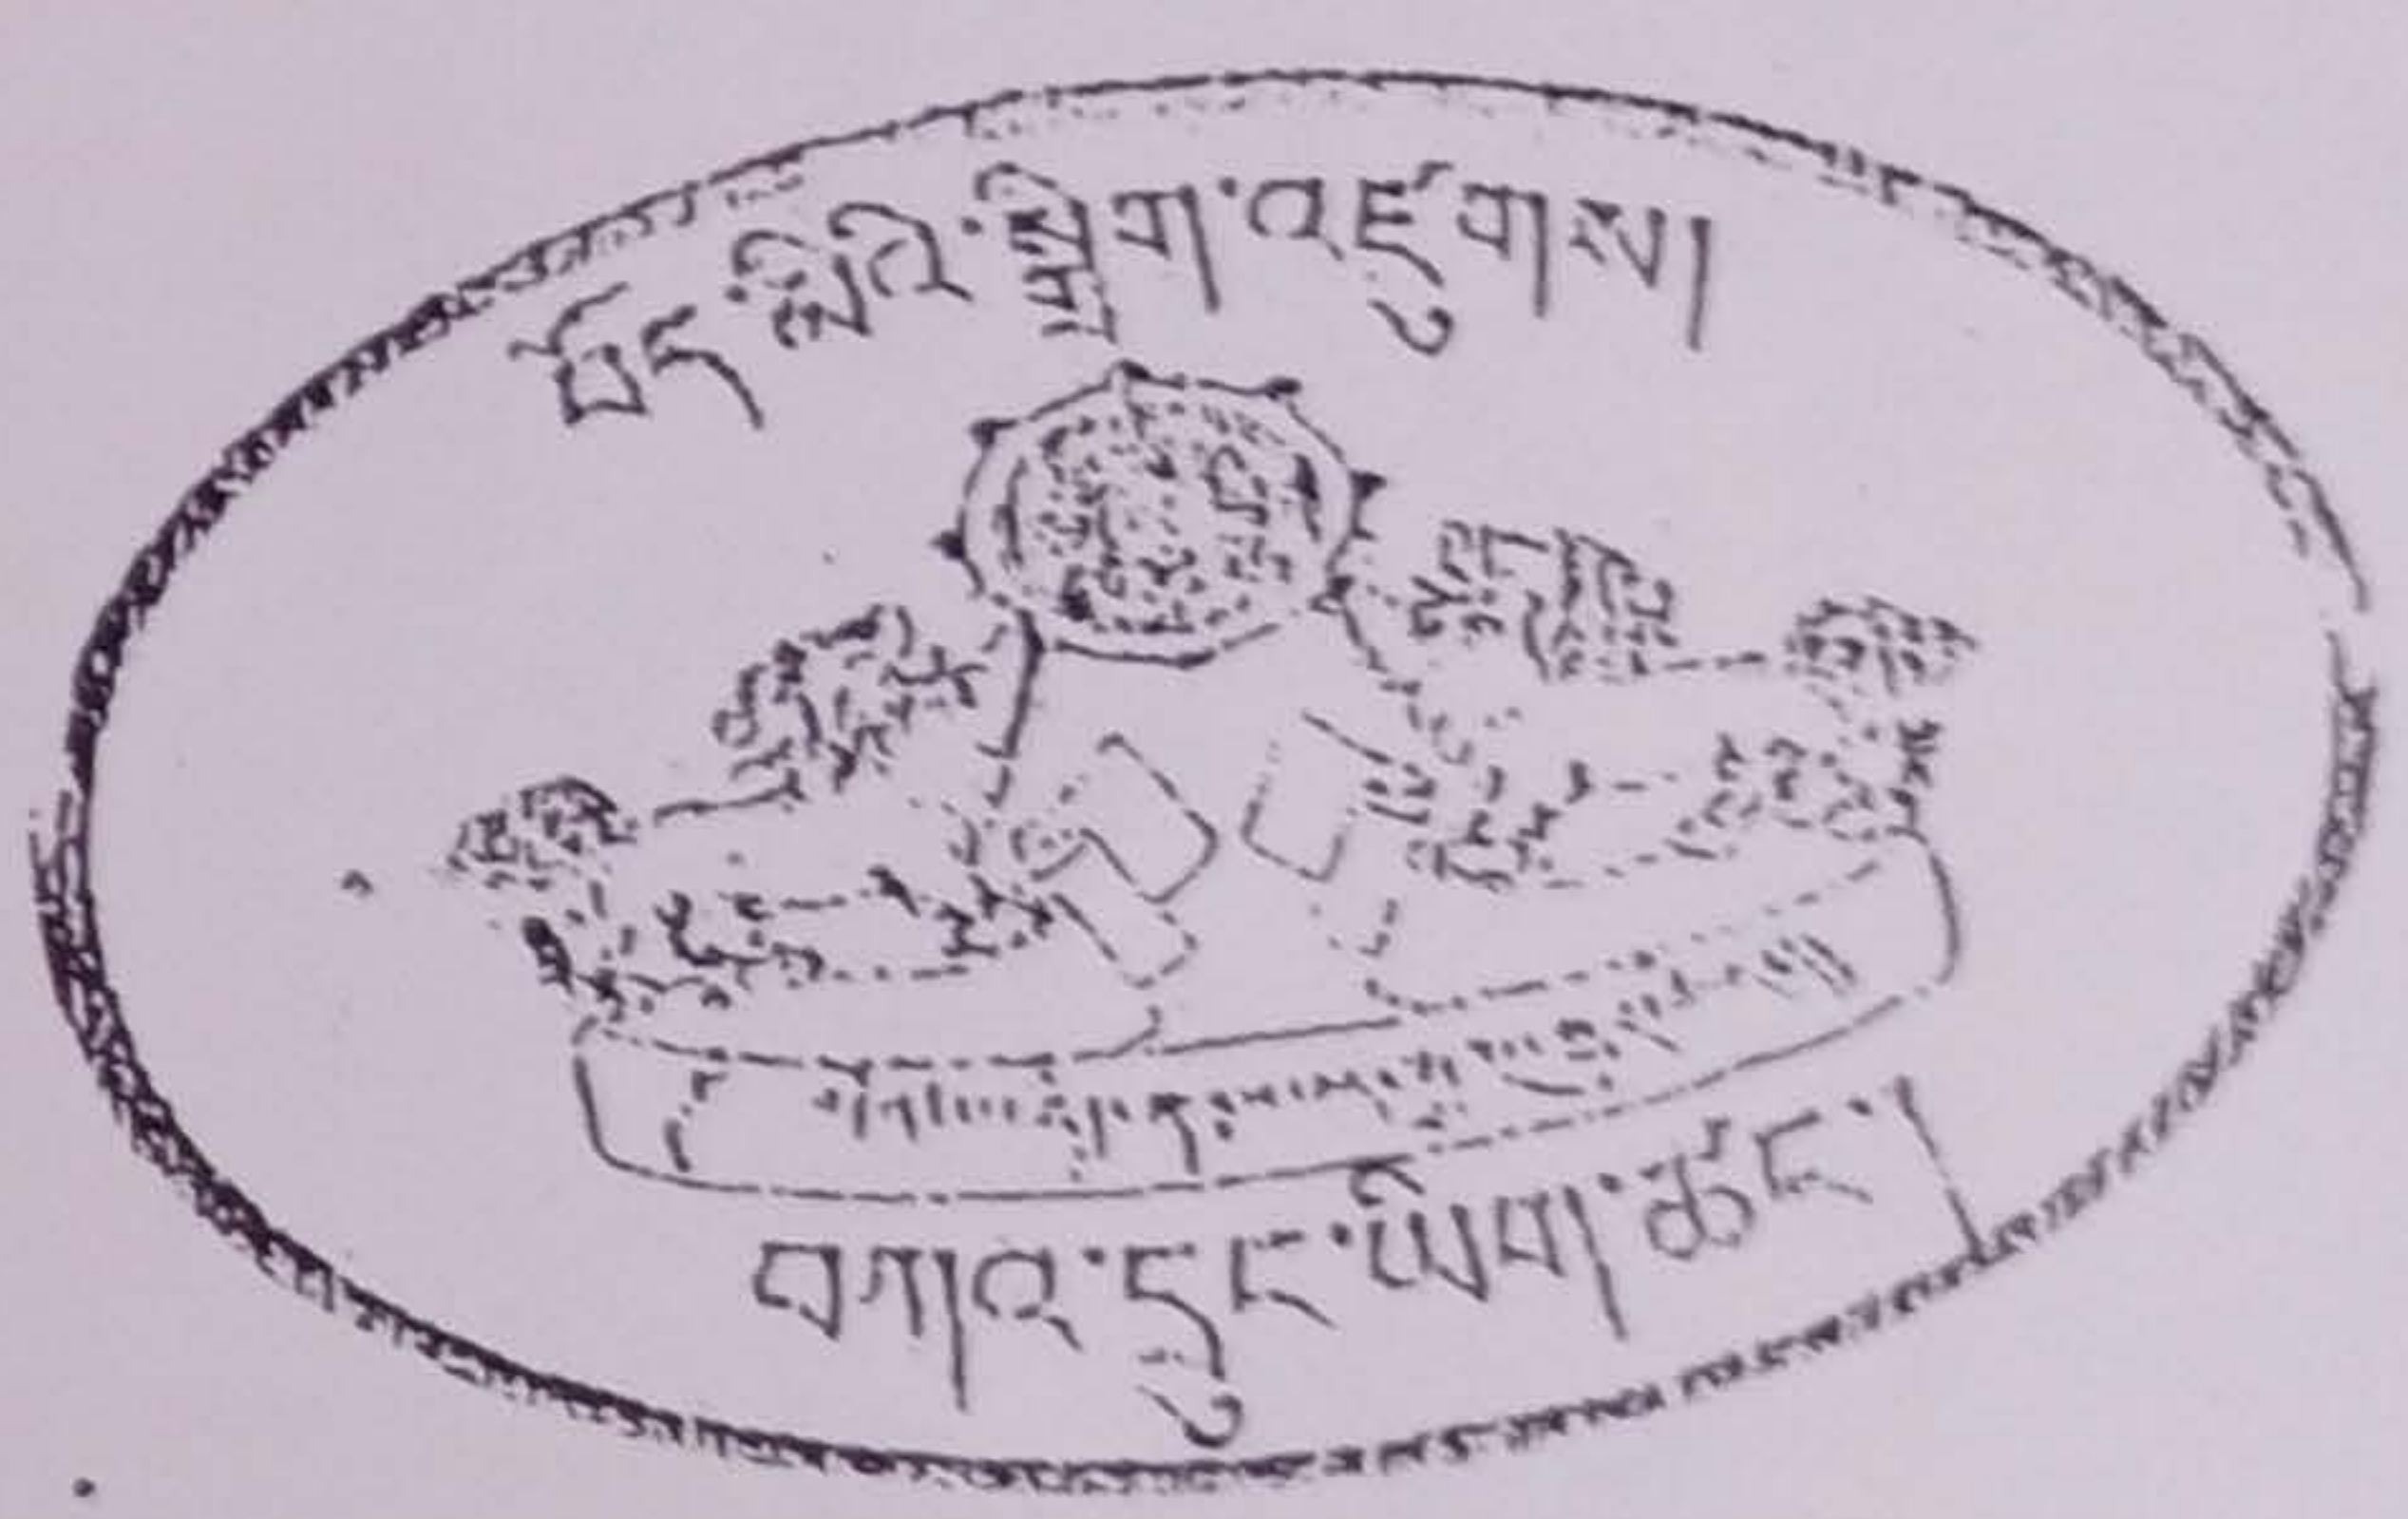 བོད་མིའི་སྒྲིག་འཛུགས།
བཀའ་དྲུང་ཡིག་ཚང་།